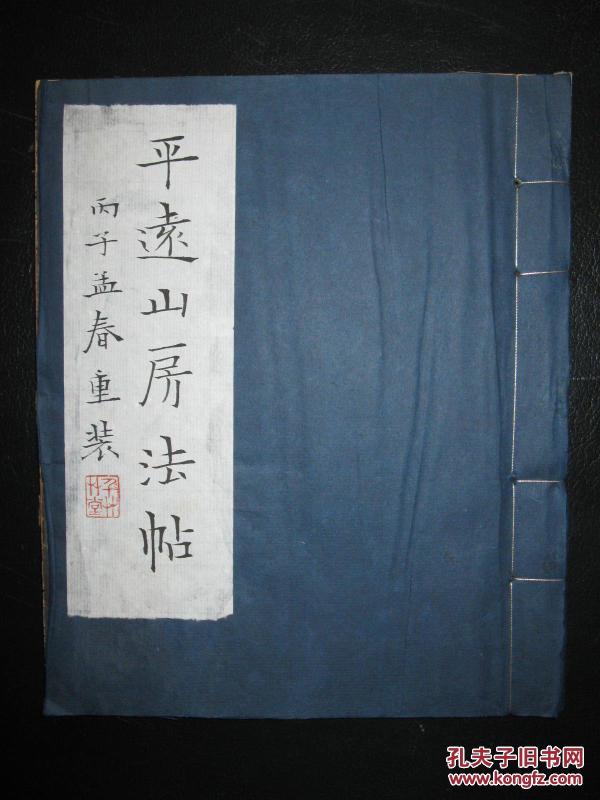 平遠山房法帖
丙子孟春重装
孔夫子旧书网
www.kongfz.com